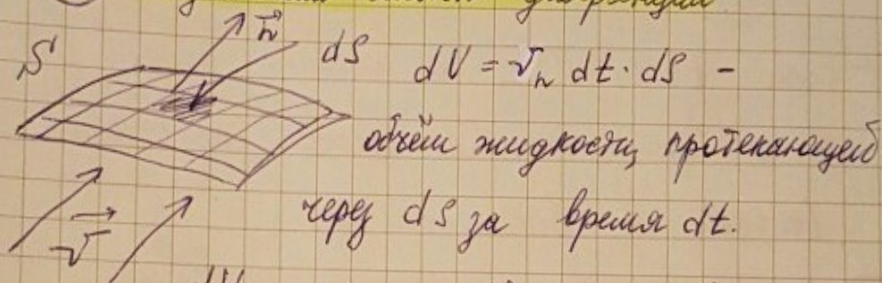 S
n⃗
dS
dV = vₙ dt · dS –
объём жидкости, протекающей
через dS за время dt.
v⃗